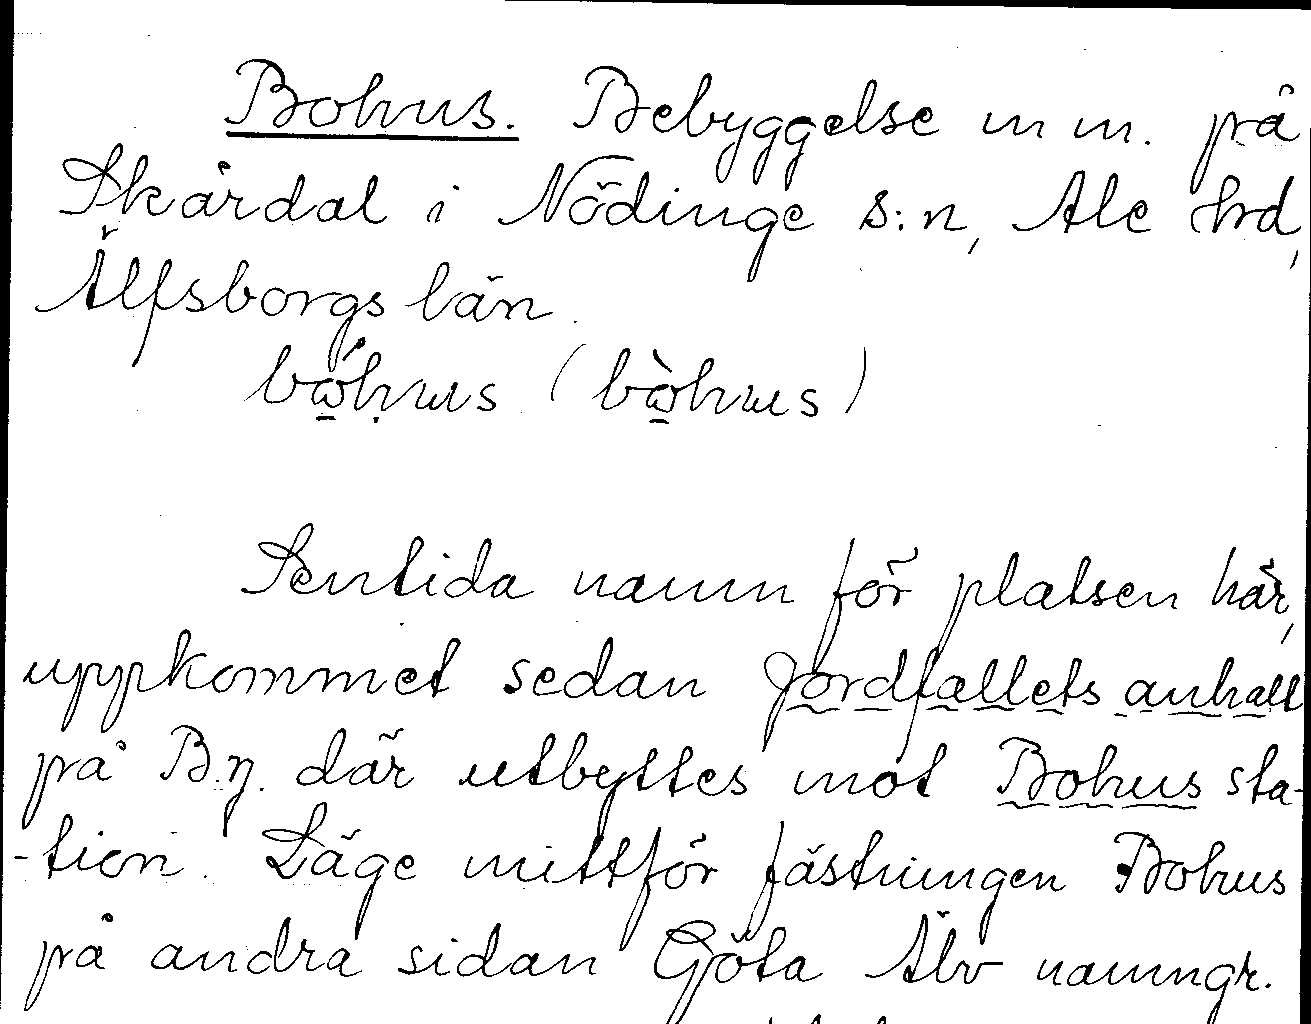 Bohus. Bebyggelse m m. på
Skårdal i Nödinge s:n, Ale hrd,
Älfsborgs län.
bóhus (bòhus)
Sentida namn för platsen här,
uppkommet sedan Jordfallets anhalt
på B.J. där utbyttes mot Bohus sta-
-tion. Läge mittför fästningen Bohus
på andra sidan Göta Älv namngr.